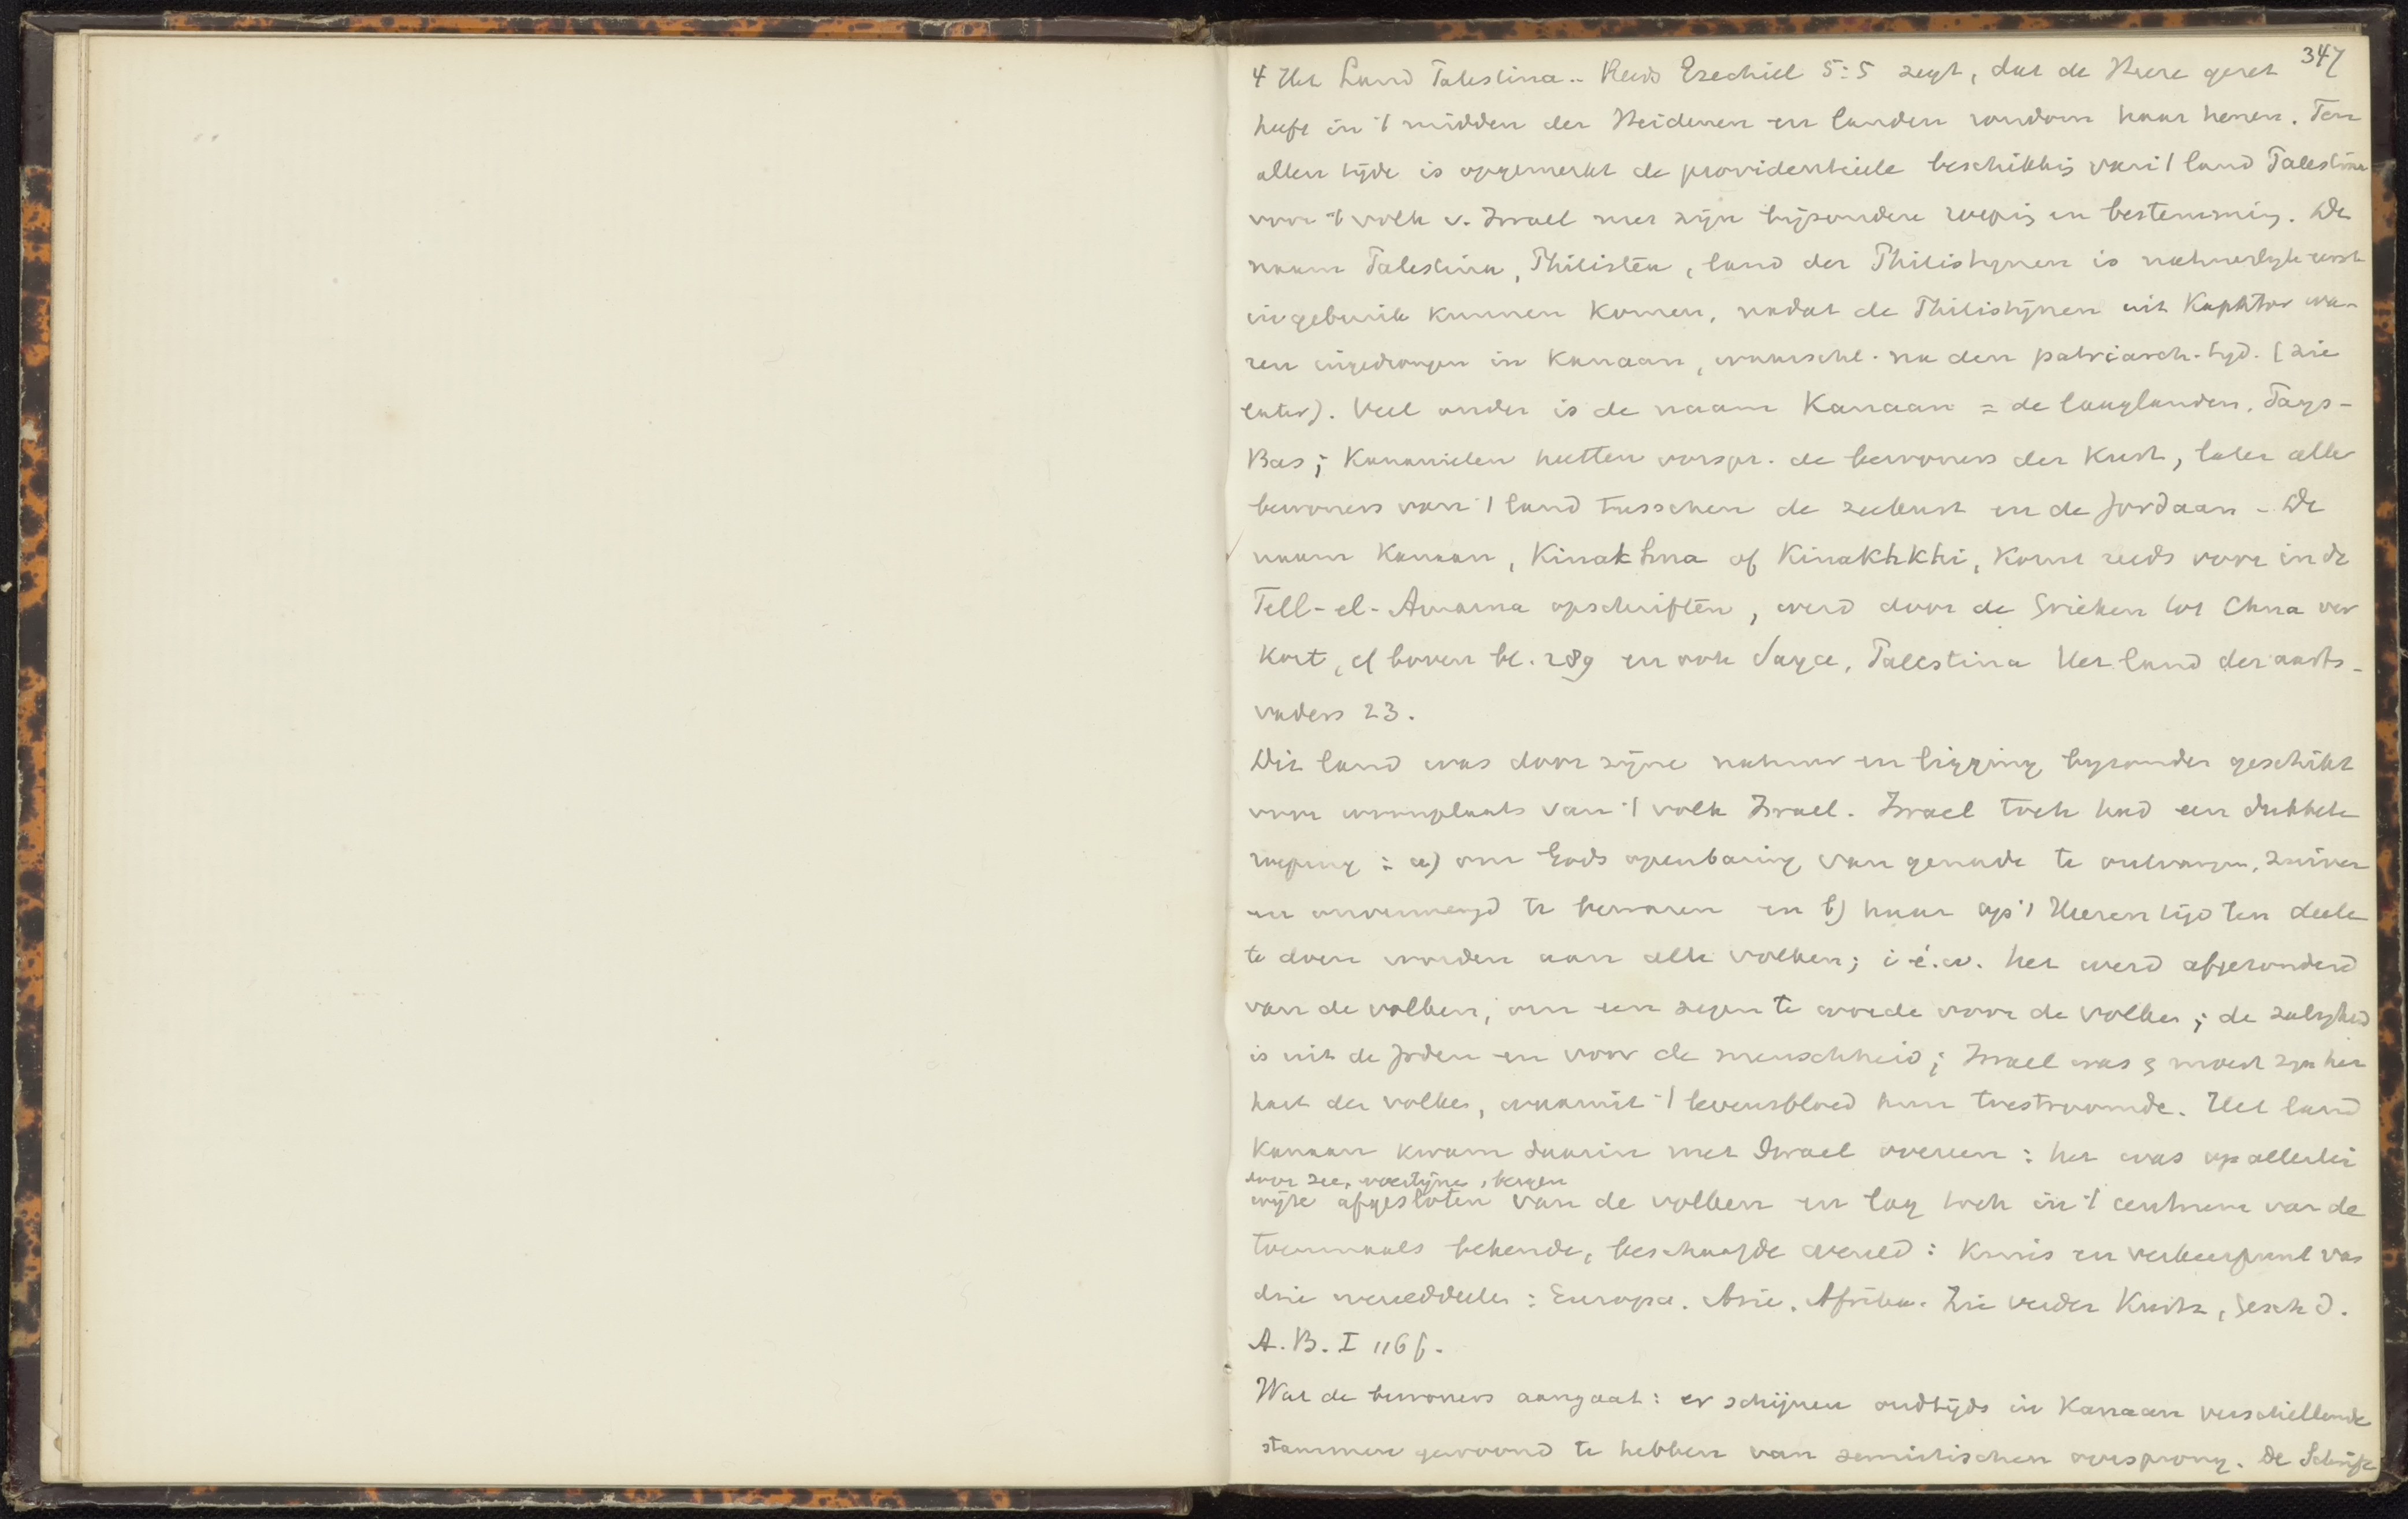 347
4 Het Land Palestina.. Reeds Ezechiel 5:5 zegt, dat de Heere gezet
heeft in 't midden der Heidenen en landen rondom haar henen. Ten
allen tijde is opgemerkt de providentieele beschikkig van 't land Palestina
voor 't volk v. Israel met zijn bijzondere roepig en bestemmig. De
naam Palestina, Philistëa, land der Philistijnen is natuurlijk eerst
in gebruik kunnen komen, nadat de Philistijnen uit Kaphtor wa-
ren ingedrongen in Kanaan, waarschl. na den patriarch. tijd. (zie
later). Veel ouder is de naam Kanaan = de laaglanden, Pays-
Bas; Kananieten heetten oorspr. de bewoners der Kust, later alle
bewoners van 't land tusschen de zeekust en de Jordaan - De
naam Kanaan, Kinakhna of Kinakhkhi, komt reeds voor in de
Tell-el-Amarna opschriften, werd door de Grieken tot Chna ver
kort, cf boven bl. 289 en ook Sayce, Palestina Het land der aarts-
vaders 23.
Dit land was door zijne natuur en ligging byzonder geschikt
voor woonplaats van 't volk Israel. Israel toch had een dubbele
roeping: a) om Gods openbaring van genade te ontvangen, zuiver
en onvermengd te bewaren en b) haar op 's Heeren tijd ten deele
te doen worden aan alle volken; i.é.w. het werd afgezonderd
van de volken, om een zegen te worde voor de volken; de zaligheid
is uit de Joden en voor de menschheid; Israel was & moest zijn het
hart der volken, waaruit 't levensbloed hun toestroomde. Het land
Kanaan kwam daarin met Israel overeen: het was op allerlei
door zee, woestijne, bergen
wijze afgesloten van de volken en lag toch in 't centrum van de
toenmaals bekende, beschaafde wereld: Kruis en verkeerpunt van
drie werelddeelen: Europa. Azie. Afrika. Zie verder Kurtz, Gesch d.
A. B. I 116 f.
Wat de bewoners aangaat: er schijnen oudtijds in Kanaan verschillende
stammen gewoond te hebben van semitischen oorsprong. De Schrift